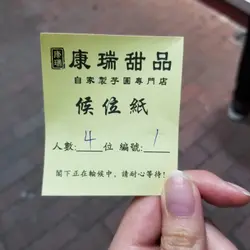 康瑞
康瑞甜品
自家製芋圓專門店
候位紙
人數：4位 編號：1
閣下正在輪候中，請耐心等待！